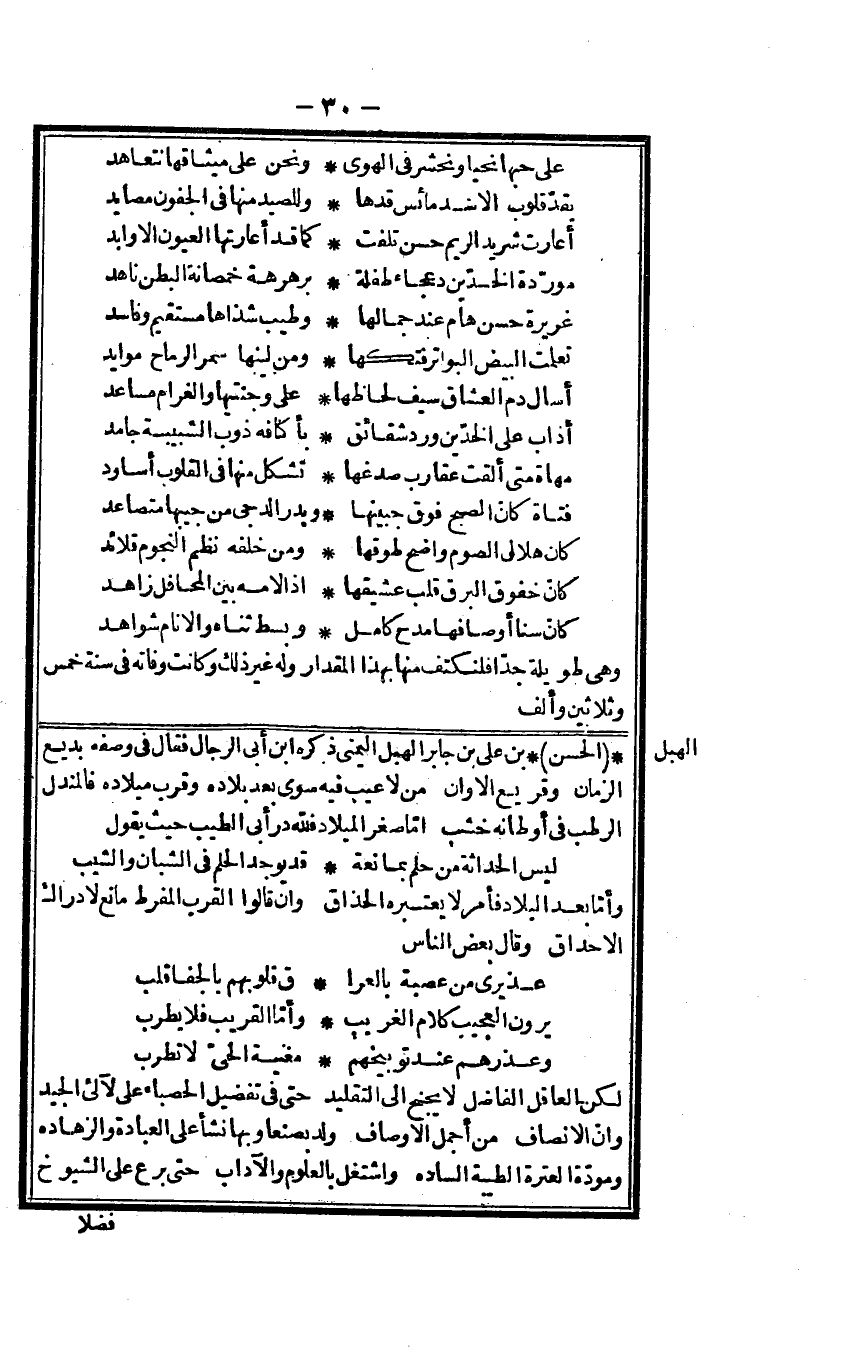 — ٣٠ —
على حبها نحيا ونحشر فى الهوى * ونحن على ميثاقها نتعاهد
يقدّ قلوب الاسد مائس قدها * وللصيد منها فى الجفون مصايد
أعارت شريد الريم حسن تلفت * كما قد أعارتها العيون الاوابد
مورّدة الخدّين دعجاء طفلة * برهرهة خمصانة البطن ناهد
غريرة حسن هام عند جمالها * وطيب شذاها مستقيم وفاسد
تعلمت البيض البواتر فتكها * ومن لينها سمر الرماح موايد
أسال دم العشاق سيف لحاظها * على وجنتيها والغرام مساعد
أذاب على الخدّين ورد شقائق * بأكنافه ذوب الشبيبة جامد
مهاة متى ألقت عقارب صدغها * تشكل منها فى القلوب أساود
فتاة كانّ الصبح فوق جبينها * وبدر الدجى من جيبها متصاعد
كان هلالى الصوم واضح طوقها * ومن خلفه نظم النجوم قلائد
كانّ خفوق البرق قلب عشيقها * اذ الامه بين المحافل زاهد
كانّ سنا أوصافها مدح كامل * وبسط ثناه والانام شواهد
وهى طويلة جدّا فلنكتف منها بهذا المقدار وله غير ذلك وكانت وفاته فى سنة خمس
وثلاثين وألف
الهبل
*(الحسن)* بن على بن جابر الهبل اليمنى ذكره ابن أبى الرجال فقال فى وصفه بديع
الزمان وقريع الاوان من لا عيب فيه سوى بعد بلاده وقرب ميلاده فالمندل
الرطب فى أوطانه خشب امّا صغر الميلاد فلله در أبى الطيب حيث يقول
ليس الحداثة من حلم بمانعة * قد يوجد الحلم فى الشبان والشيب
وأمّا بعد البلاد فأمر لا يعتبره الحذاق وان قالوا القرب المفرط مانع لادراك
الاحداق وقال بعض الناس
عذيرى من عصبة بالعرا * ق قلوبهم بالجفا قلب
يرون العجيب كلام الغريب * وأمّا القريب فلا يطرب
وعذرهم عند توبيخهم * مغنية الحىّ لا تطرب
لكنّ العاقل الفاضل لا يجنح الى التقليد حتى فى تفضيل الحصباء على لآلئ الجيد
وانّ الانصاف من أجمل الاوصاف ولد بصنعا وبها نشأ على العبادة والزهاده
ومودّة العترة الطيبة الساده واشتغل بالعلوم والآداب حتى برع على الشيوخ
فضلا